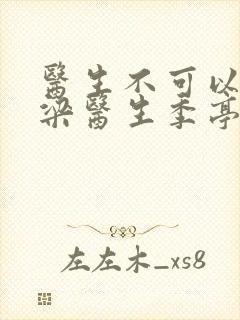 醫生不可以
梁醫生季亭
左左木_xs8